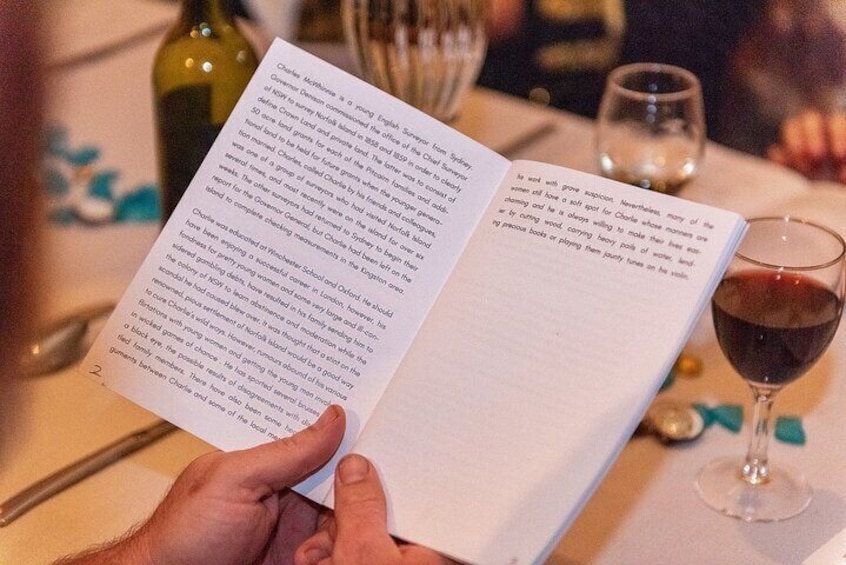 Charles McWhinnie is a young English Surveyor from Sydney.
Governor Denison commissioned the office of the Chief Surveyor
of NSW to survey Norfolk Island in 1858 and 1859 in order to clearly
define Crown Land and private land. The latter was to consist of
50 acre land grants for each of the Pitcairn families and addi-
tional land to be held for future grants when the younger genera-
tion married. Charles, called Charlie by his friends and colleagues,
was one of a group of surveyors who had visited Norfolk Island
several times, and most recently were on the island for over six
weeks. The other surveyors had returned to Sydney to begin their
report for the Governor General, but Charlie had been left on the
island to complete checking measurements in the Kingston area.
Charlie was educated at Winchester School and Oxford. He should
have been enjoying a successful career in London, however, his
fondness for pretty young women and some very large and ill-con-
sidered gambling debts, have resulted in his family sending him to
the colony of NSW to learn abstinence and moderation while the
scandal he had caused blew over. It was thought that a stint on the
renowned, pious settlement of Norfolk Island would be a good way
to cure Charlie's wild ways. However, rumours abound of his various
flirtations with young women and getting the young men
in wicked games of chance. He has sported several bruises
a black eye, the possible results of disagreements with
fied family members. There have also been some
guments between Charlie and some of the local
2
he work with grave suspicion. Nevertheless, many of the
women still have a soft spot for Charlie whose manners are
charming and he is always willing to make their lives eas-
ier by cutting wood, carrying heavy pails of water, lend-
ing precious books or playing them jaunty tunes on his violin.